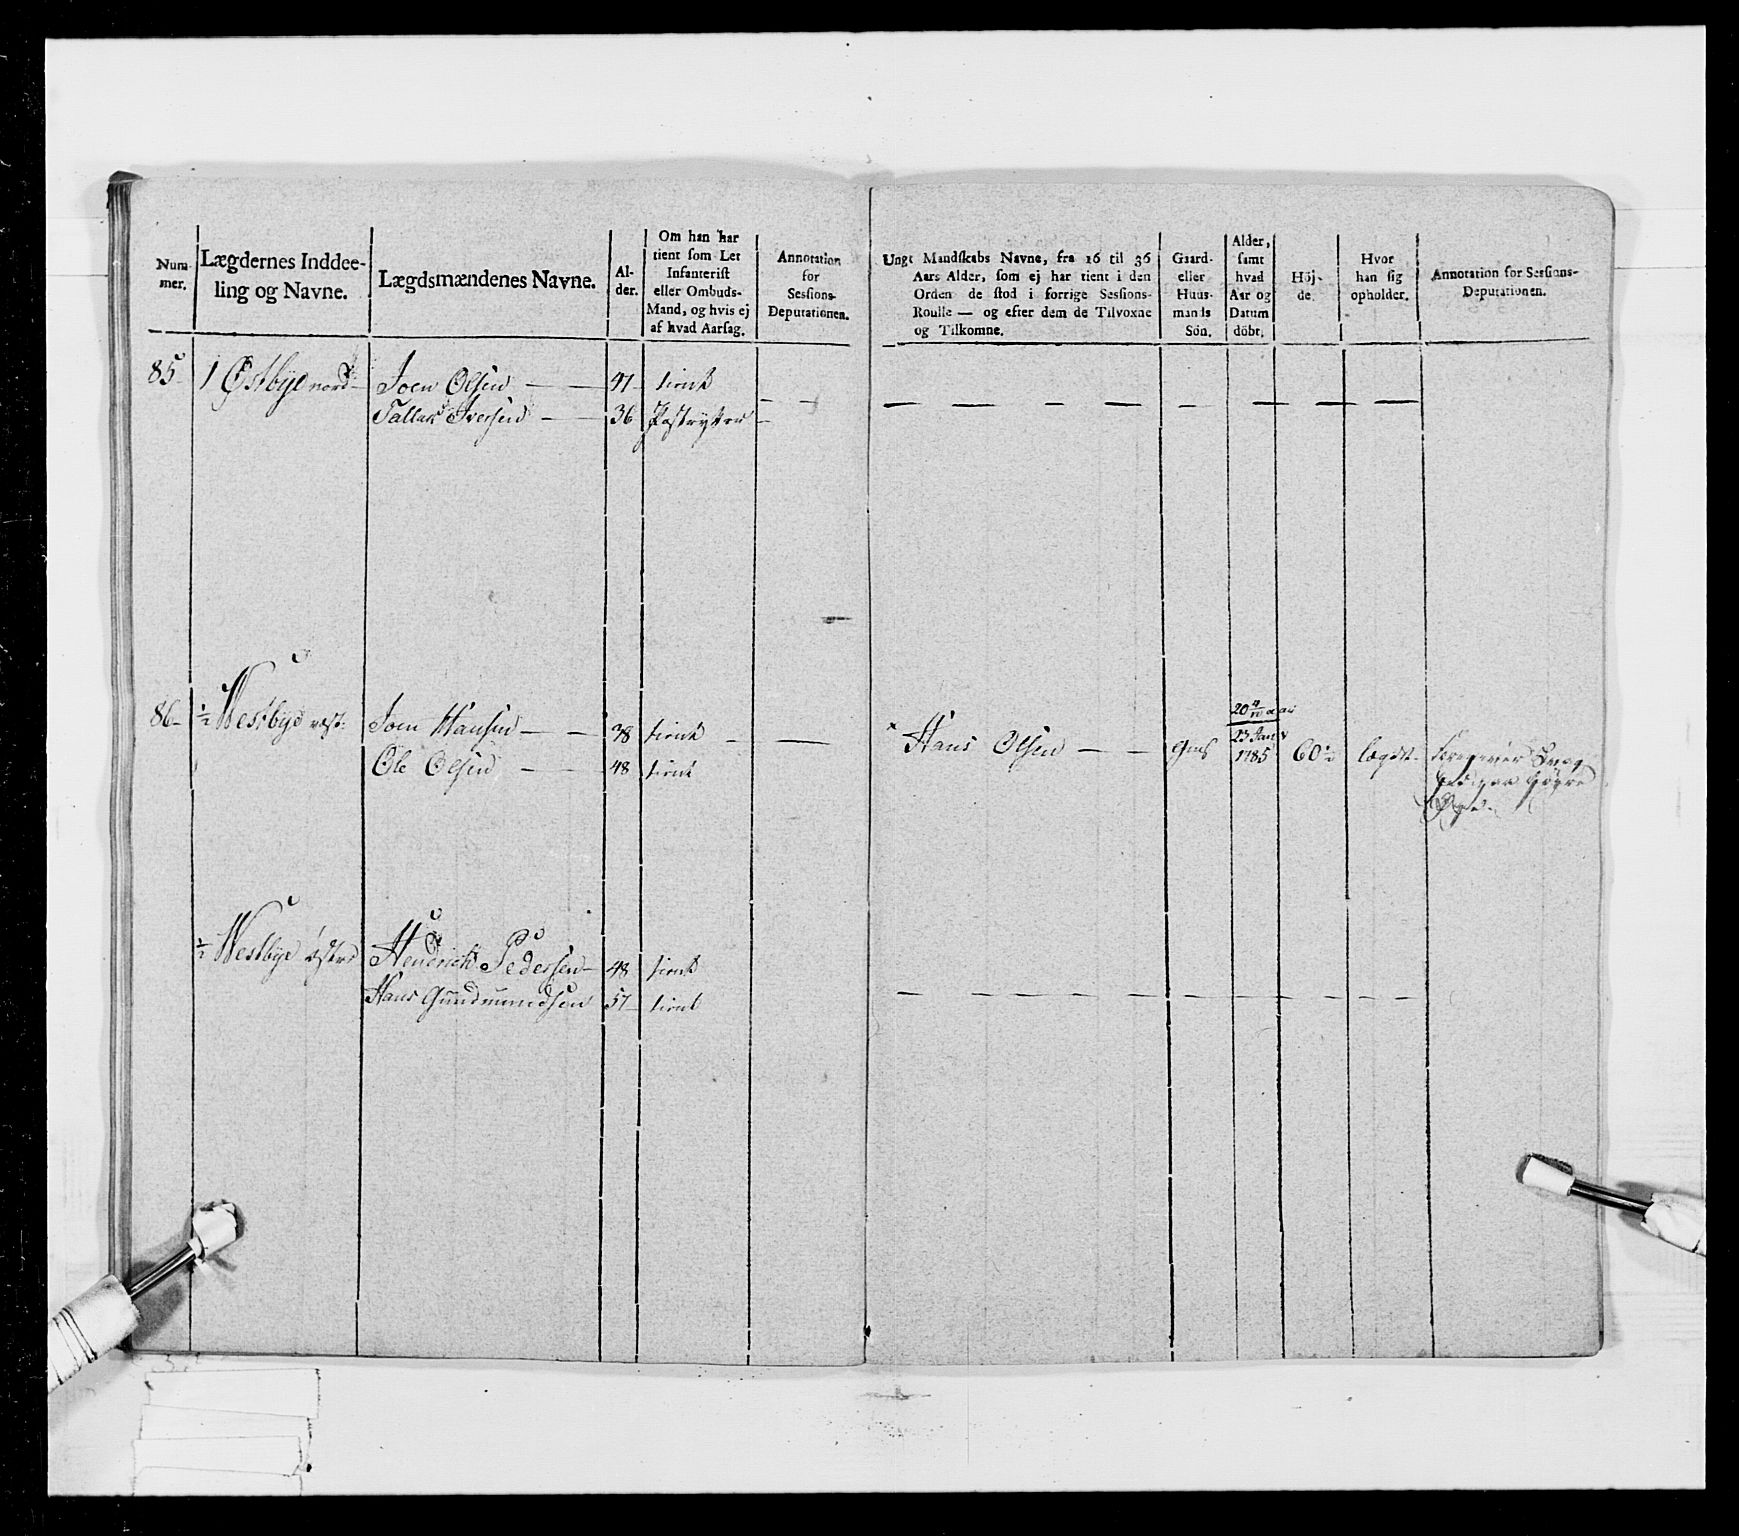 Num-
mer.
Lægdernes Inddee-
ling og Navne.
Lægdsmændenes Navne.
Al-
der.
Om han har
tient som Let
Infanterist
eller Ombuds-
Mand, og hvis ej
af hvad Aarsag.
Annotation
for
Sessions-
Deputationen.
Ungt Mandskabs Navne, fra 16 til 36
Aars Alder, som ej har tient i den
Orden de stod i forrige Sessions-
Roulle — og efter dem de Tilvoxne
og Tilkomne.
Gaard-
eller
Huus-
mands
Sön.
Alder,
samt
hvad
Aar og
Datum
döbt.
Höj-
de.
Hvor
han sig
opholder.
Annotation for Sessions-
Deputationen.
85 1 Østbye nord Joen Olsen — — 47 tient
Tallak Iversen — — 36 Postrytter —
86 ½ Westbye vest. Joen Hansen — — 38 tient — —
Ole Olsen — — 48 tient
× Hans Olsen — — GmS 23 Jan 1785 60½ lægdet. foregiver Svag
høyre
Øye.
½ Westbye østre Hendrich Pedersen — 48 tient
Hans Gundmundsen 57 tient